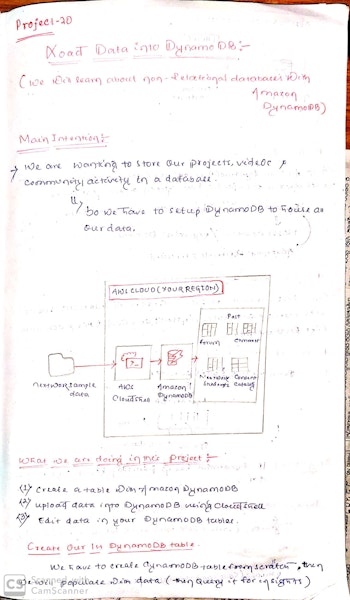 Project-20
Load Data into DynamoDB:-
(We will learn about non-Relational databases with
Amazon
DynamoDB)
Main Intention:-
We are wanting to store our projects, videos &
community activity in a database.
So we have to setup DynamoDB to house as
our data.
AWS CLOUD (YOUR REGION)
Post
Forum
Comment
Content
Catalog
network sample
data
AWS
CloudShell
Amazon
DynamoDB
What we are doing in this Project:-
(1) Create a table with Amazon DynamoDB
(2) upload data into DynamoDB using CloudShell
(3) Edit data in your DynamoDB tables.
Create Our 1st DynamoDB table.
We have to create DynamoDB table from scratch, then
we will populate with data (then Query it for insights)
CS
CamScanner